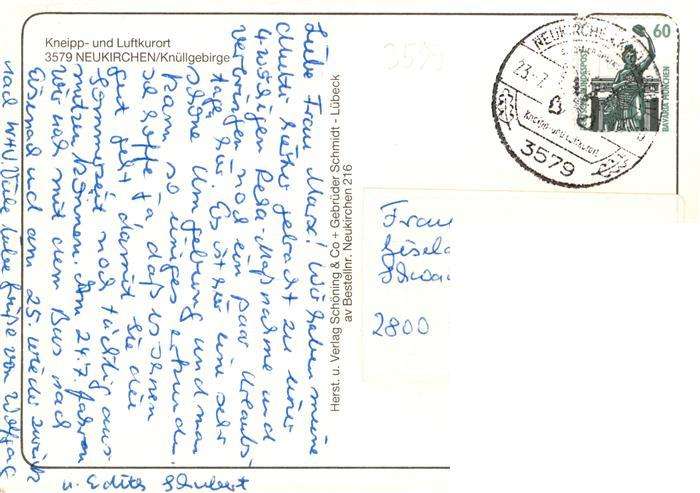 Kneipp- und Luftkurort
3579 NEUKIRCHEN/Knüllgebirge
3579
NEUKIRCHEN
23.-7.
Kneipp- und Luftkurort
3579
60
DEUTSCHE BUNDESPOST
BAVARIA MÜNCHEN
Liebe Frau Marx! Wir haben meine
hierher gebracht zu einer
4 wöchigen Reha-Maßnahme und
verbringen noch ein paar Urlaubs-
tage hier. Es ist hier eine sehr
schöne Umgebung und man
kann so einiges erkunden.
Ich hoffe ja, daß es Ihnen
gut geht damit Sie die
Sommerzeit noch tüchtig aus-
nutzen können. Am 24.7. fahren
wir noch mit dem Bus nach
Eisenach und am 25. wieder zurück
nach WHV. Viele liebe Grüße von Wolfgang
u. Edith Schubert
Herst. u. Verlag Schöning & Co + Gebrüder Schmidt - Lübeck
av Bestellnr. Neukirchen 216
Frau
Gisela
Schwa
2800